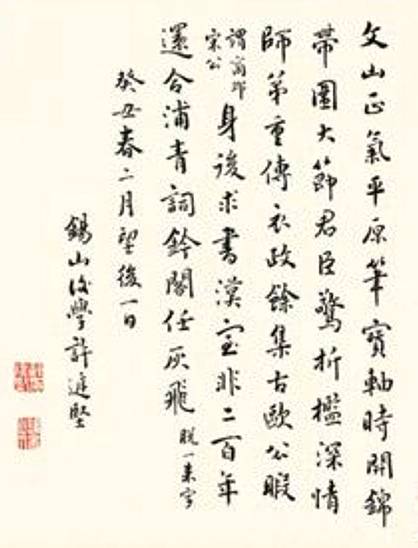 文山正氣平原筆寶軸時開錦
帶圍大節君臣驚折檻深情
師弟重傳衣政餘集古歐公暇
謂商邱
宋公
身後求書漢室非二百年
還合浦青詞鈐閣任灰飛
脫一來字
癸丑春二月望後一日
錫山後學許廷堅